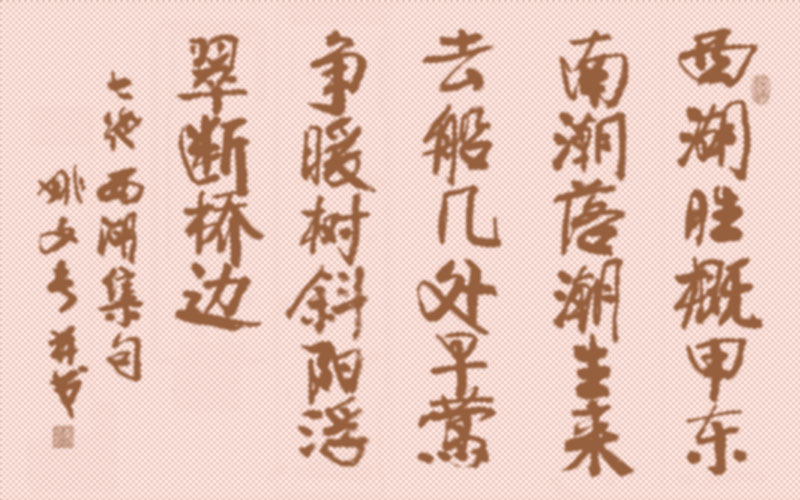 西湖胜概甲东
南潮落潮生来
去船几处早莺
争暖树斜阳浮
翠断桥边
七绝西湖集句
刘文春并书